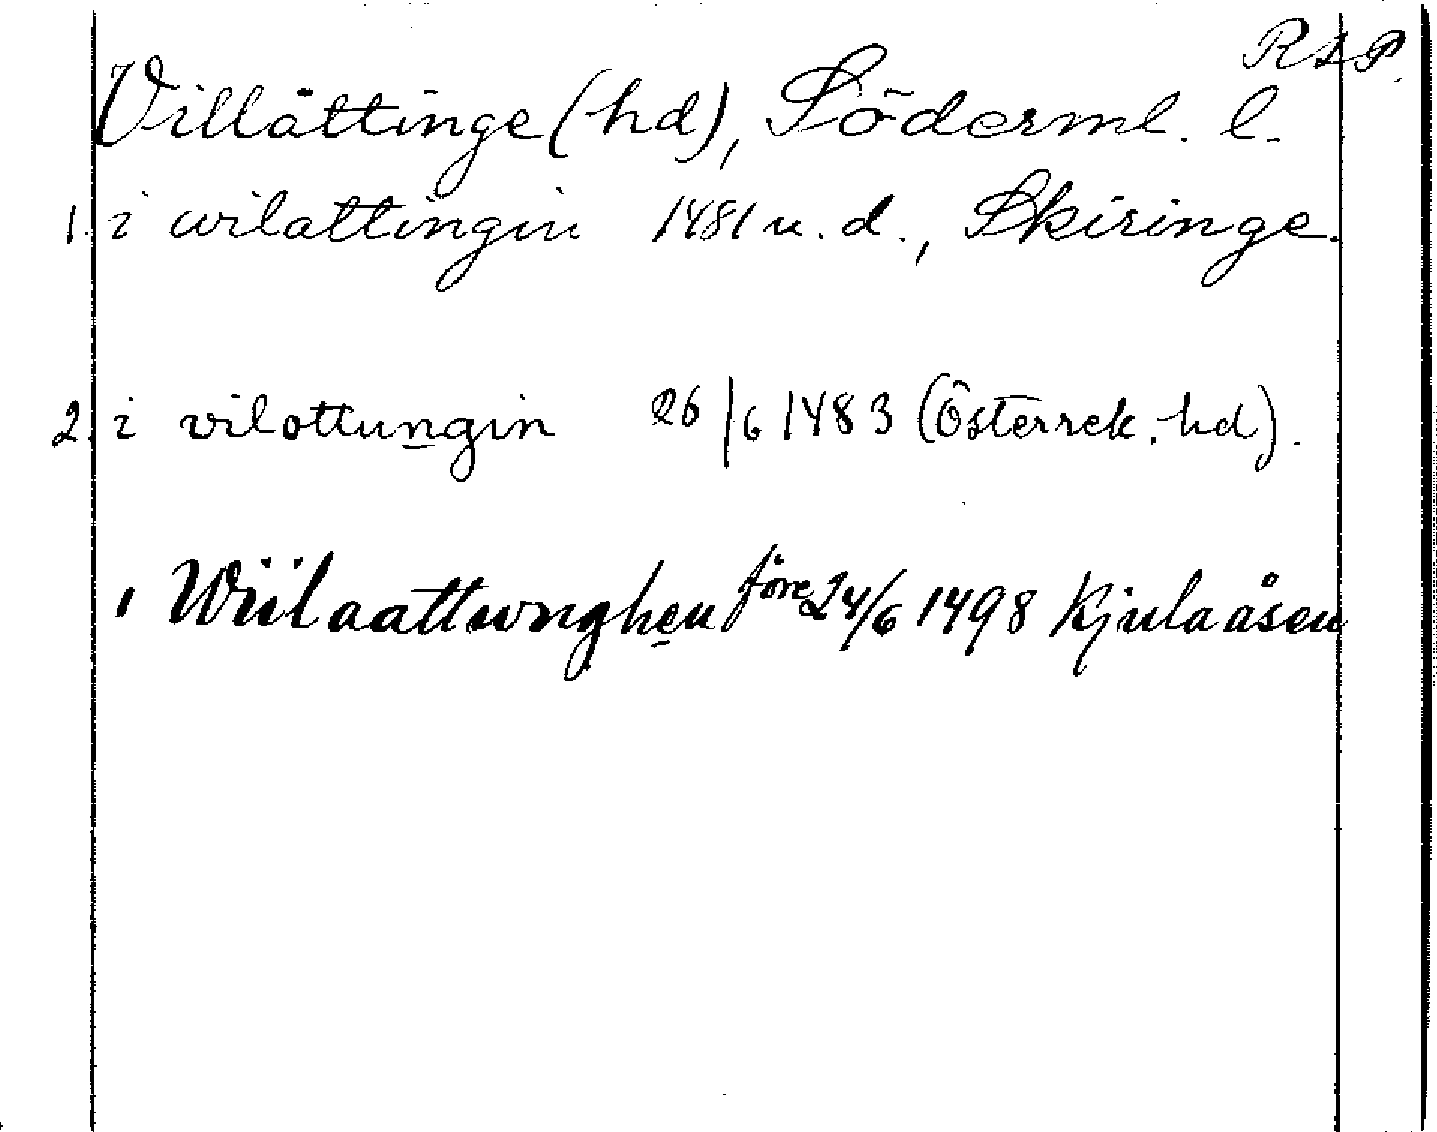 RAP.
Villåttinge (hd), Söderml. l.
1. i wilattingin 1481 u. d., Skiringe.
2. i vilottungin 26/6 1483 (Österrek. hd).
i Wiilaattwnghen före 24/6 1498 Kjulaåsen